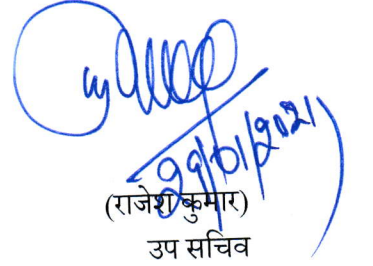 29/01/2021
(राजेश कुमार)
उप सचिव